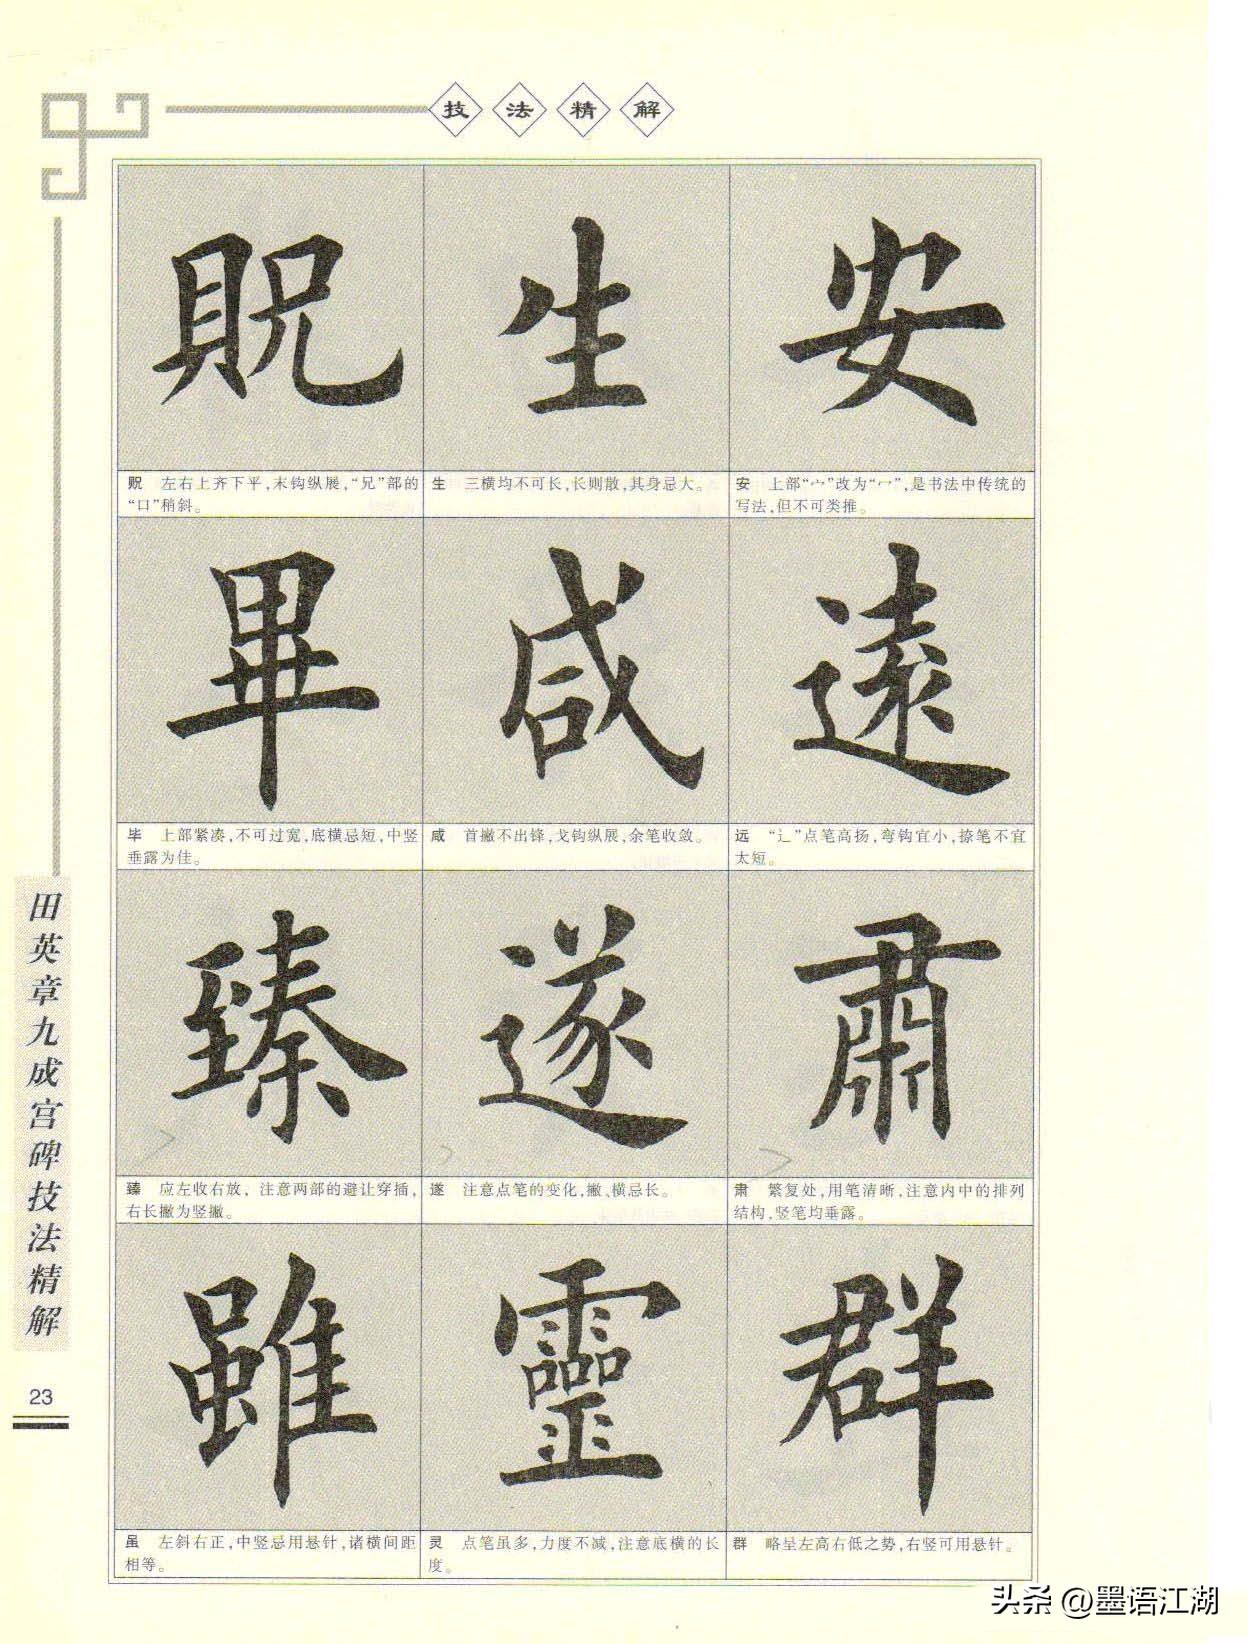 技法精解
貺 生 安
贶 左右上齐下平,末钩纵展,“兄”部的
“口”稍斜。
生 三横均不可长,长则散,其身忌大。
安 上部“宀”改为“冖”,是书法中传统的
写法,但不可类推。
畢 咸 遠
毕 上部紧凑,不可过宽,底横忌短,中竖
垂露为佳。
咸 首撇不出锋,戈钩纵展,余笔收敛。
远 “辶”点笔高扬,弯钩宜小,捺笔不宜
太短。
臻 遂 肅
臻 应左收右放,注意两部的避让穿插,
右长撇为竖撇。
遂 注意点笔的变化,撇、横忌长。
肃 繁复处,用笔清晰,注意内中的排列
结构,竖笔均垂露。
雖 靈 群
虽 左斜右正,中竖忌用悬针,诸横间距
相等。
灵 点笔虽多,力度不减,注意底横的长
度。
群 略呈左高右低之势,右竖可用悬针。
田英章九成宫碑技法精解
23
头条 @墨语江湖